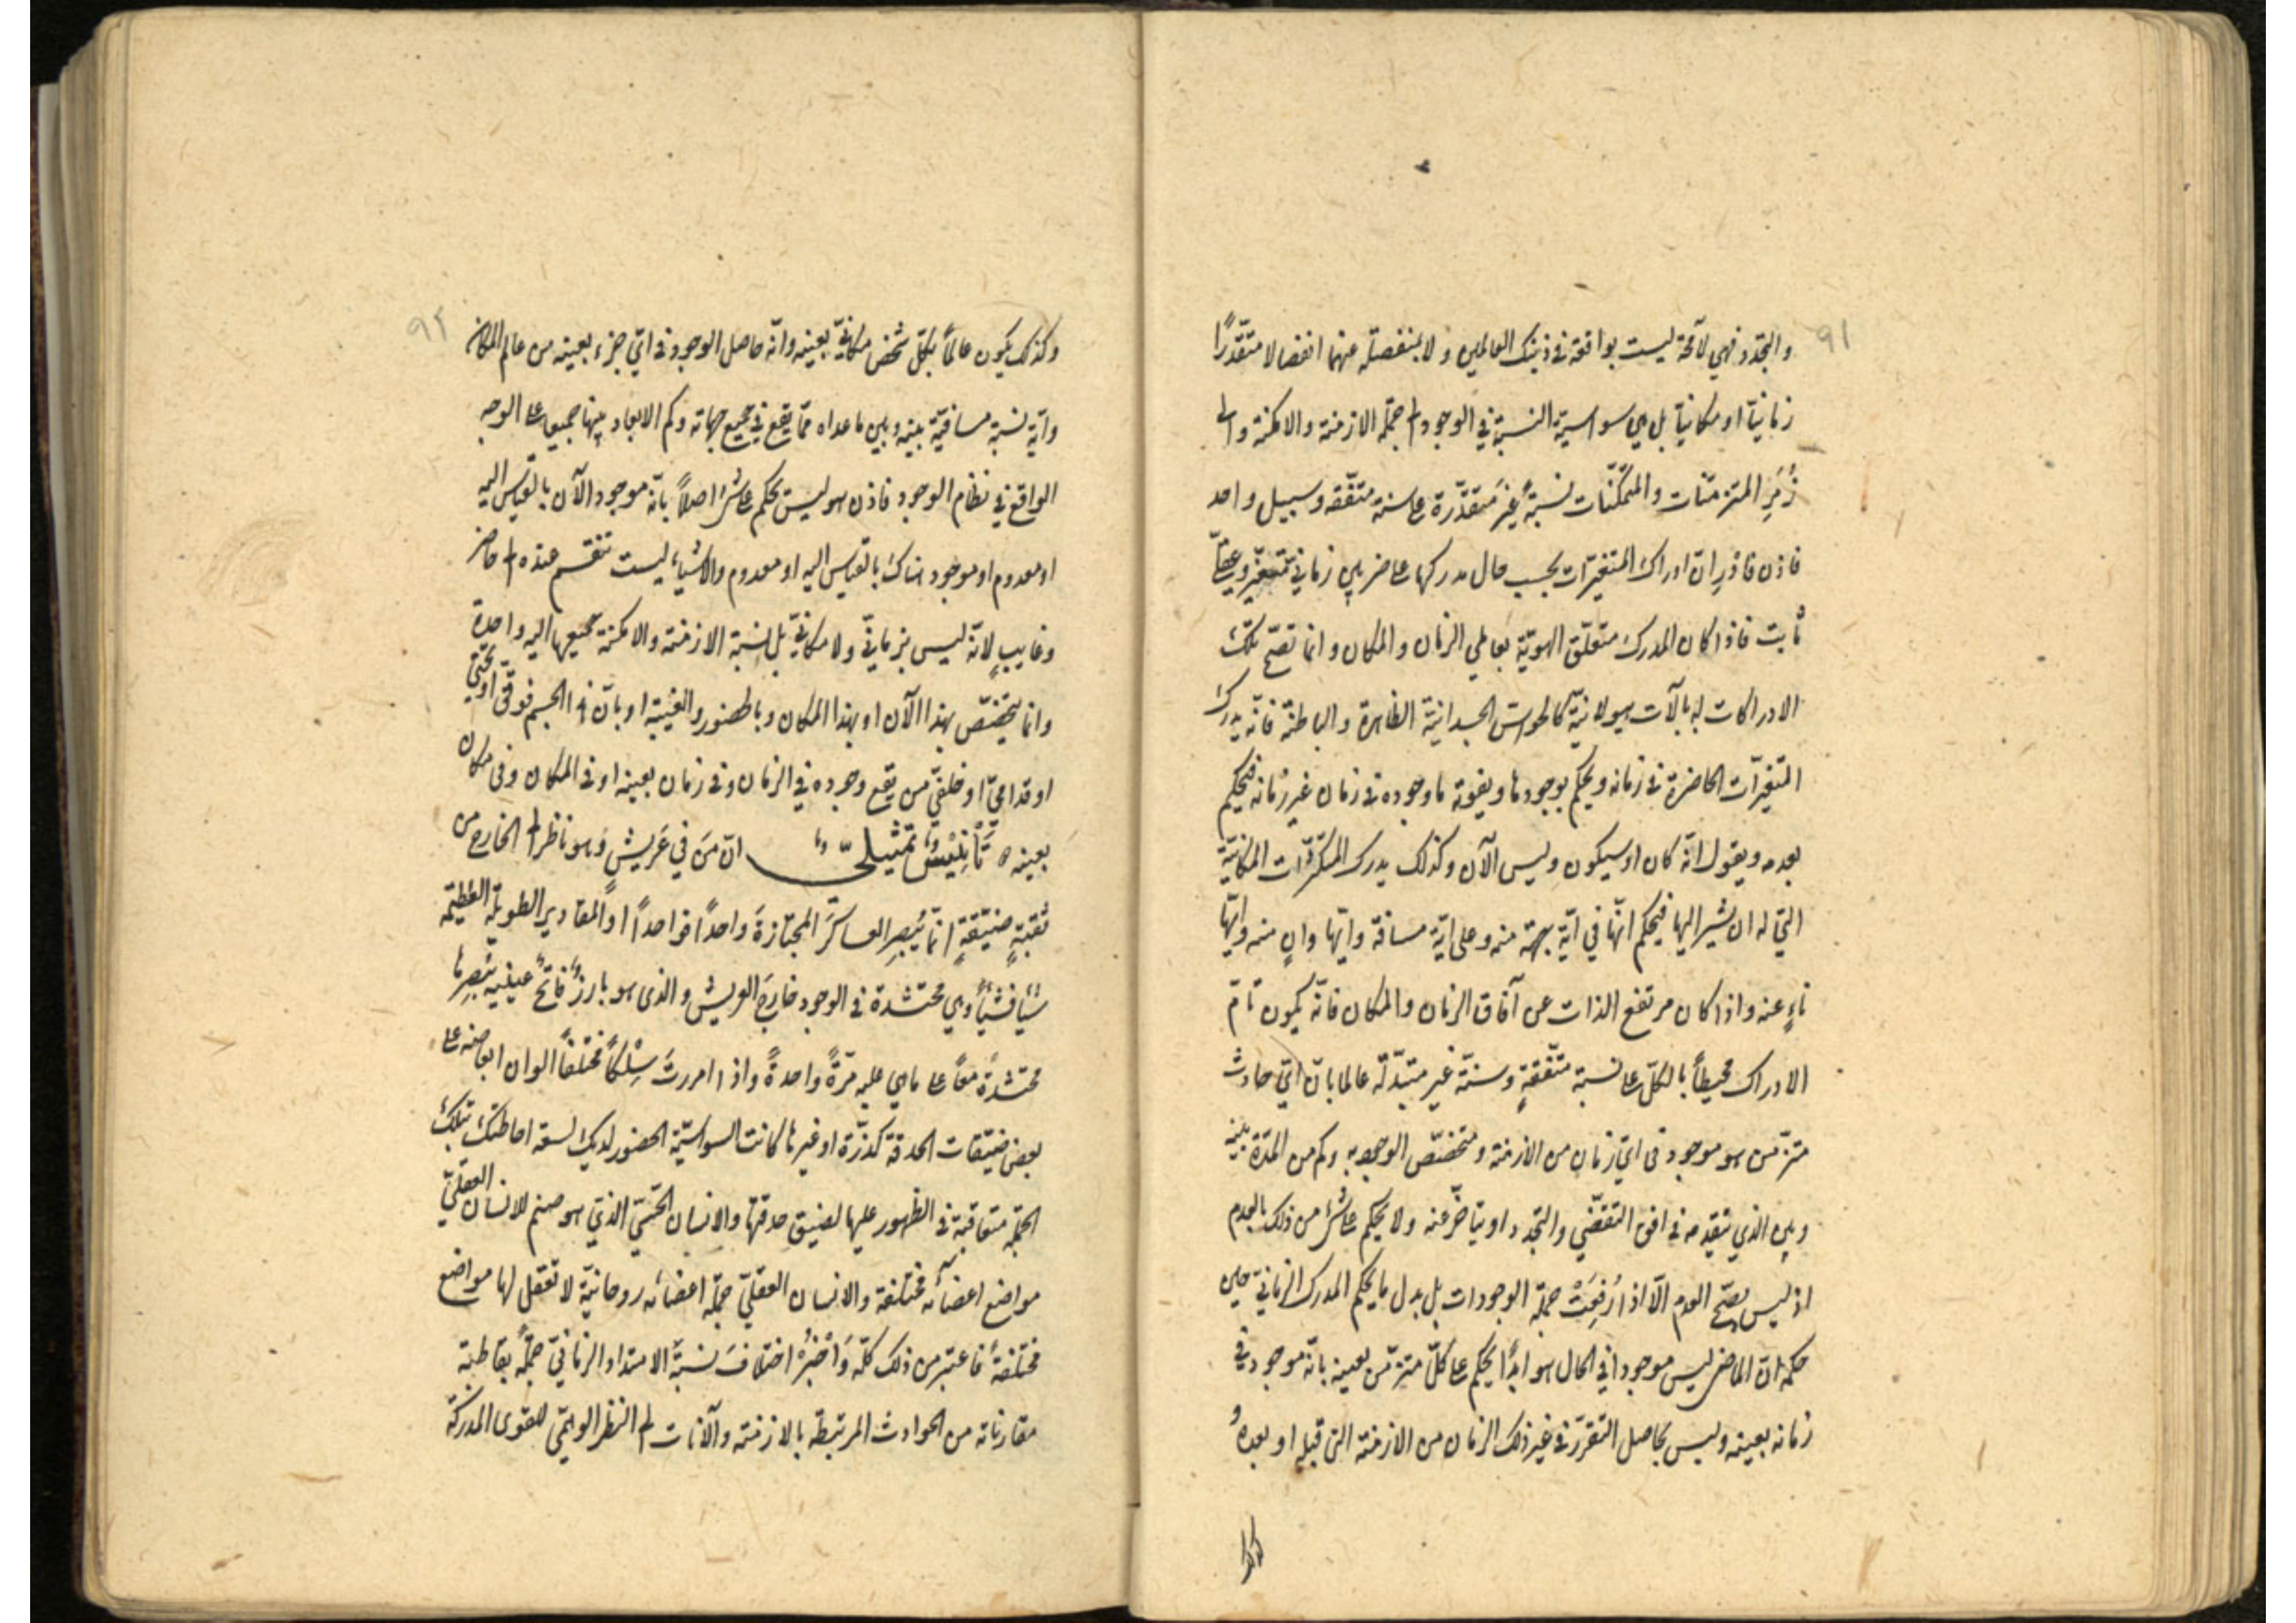 ٩١
والتجدد فهي لامحة ليست بواقعة في ذينك العالمين ولا بمنفصلة عنهما انفصالا متقدّرًا
زمانيّا او مكانيّا بل هي سواسيّة النسبة في الوجود الى جملة الازمنة والامكنة والى
زُمَرِ المتزمّنات والمتمكّنات نسبةً غيرَ متقدّرة على سنة متّفقة وسبيل واحد
فاذن فاذرِ انّ ادراك المتغيّرات بحسب حال مدركها على ضربين زمانيّ متغيّر وعقليّ
ثابت فاذا كان المدرك متعلّق الهويّة بعالمي الزمان والمكان وانما تصحّ تلك
الادراكات له بآلات هيولانيّة كالحواسّ الجسدانيّة الظاهرة والباطنة فانّه يدرك
المتغيّرات الحاضرة في زمانه ويحكم بوجودها ويفوته ما وجوده في زمان غير زمانه فيحكم
بعدمه ويقول انّه كان او سيكون وليس الآن وكذلك يدرك المتكثّرات المكانيّة
التي له ان يشير اليها فيحكم انّها في ايّة جهة منه وعلى ايّة مسافة وايّها دانٍ منه وايّها
ناءٍ عنه واذا كان مرتفع الذات عن آفاق الزمان والمكان فانّه يكون تامّ
الادراك محيطاً بالكلّ على نسبة متّفقةٍ وسنّة غير متبدّلة عالما بانّ ايّ حادث
متزمّن هو موجود في ايّ زمان من الازمنة ومتخصّص الوجود به وكم من المدّة بينه
وبين الذي يتقدمه في افق التقضّي والتجدد او يتاخّر عنه ولا يحكم على شئ من ذلك بالعدم
اذ ليس يصحّ العدم الّا اذا رُفِعَتْ جملة الوجودات بل بدل ما يحكم المدرك الزمانيّ حين
حكمه انّ الماضي ليس موجودا في الحال هو ابدًا يحكم على كلّ متزمّن بعينه بانّه موجود في
زمانه بعينه وليس بحاصل التقرّر في غير ذلك الزمان من الازمنة التى قبله او بعده
وكذلك
٩٢
وكذلك يكون عالماً بكلّ شخص مكانيّ بعينه وانّه حاصل الوجود في ايّ جزء بعينه من عالم المكان
وايّة نسبة مسافيّة بينه وبين ما عداه ممّا يقع في جميع جهاته وكم الابعاد بينها جميعا على الوجه
الواقع في نظام الوجود فاذن هو ليس يحكم على شئ اصلاً بانّه موجود الآن بالقياس اليه
او معدوم او موجود هناك بالقياس اليه او معدوم والاشياء ليست تنقسم عنده الى حاضر
وغايبٍ لانّه ليس بزمانيّ ولا مكانيّ بل نسبة الازمنة والامكنة جميعها اليه واحدة
وانما يختصّ بهذا الآن او بهذا المكان وبالحضور والغيبة او بانّ هذا الجسم فوقيّ او تحتيّ
او قداميّ او خلفيّ من يقع وجوده في الزمان وفي زمان بعينه او في المكان وفى مكان
بعينه ه تَأْنِيْسٌ تمثيليّ انّ مَن في عَريشٍ وهو ناظر الى الخارج من
ثقبةٍ ضيّقةٍ انّما يُبصِرِ العساكرَ المجتازةَ واحداً فواحداً او المقادير الطويلة العظيمة
شيئا فشيئاً وهي محتشدة في الوجود خارجَ العريش والذى هو بارزٌ فاتحٌ عينيه يُبصِرها
محتشدةً معًا على ما هي عليه مرّةً واحدةً واذا امررتَ سِلْكًا مختلفاً الوان ابعاضه على
بعض ضيّقات الحدقة كذرّة او غيرها كانت السواسيّة الحضور لديك لسعة احاطتك تلك
الجملة متعاقبة في الظهور عليها لضيق حدقتها والانسان الحسّيّ الذي هو صنم للانسان العقليّ
مواضع اعضائه مختلفة والانسان العقليّ جملة اعضائه روحانيّة لا تعقل لها مواضع
مختلفةٌ فاعتبر من ذلك كلّه وَاخْبُرْ اختلافَ نسبة الامتداد الزمانيّ جملةً بقاطبة
مقارناته من الحوادث المرتبطة بالازمنة والآنات الى النظر الوهميّ للقوى المدركة